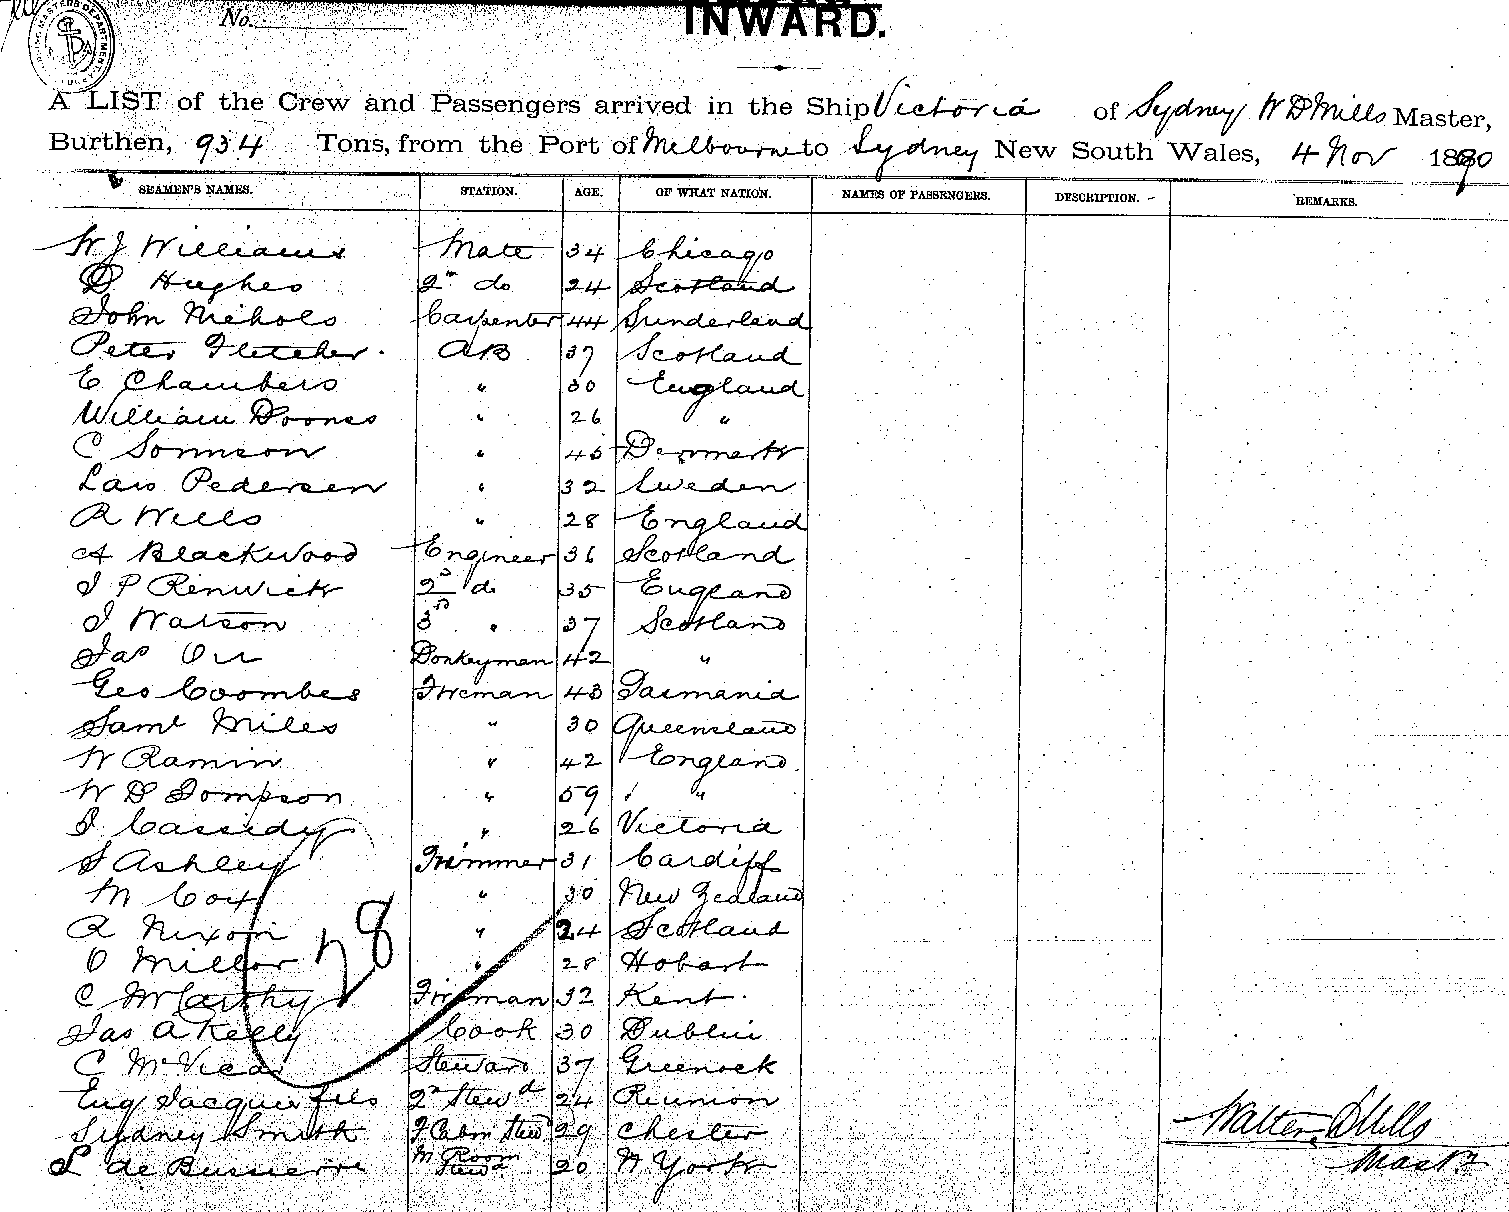 No.
INWARD.
A LIST of the Crew and Passengers arrived in the Ship Victoria of Sydney W D Mills Master,
Burthen, 934 Tons, from the Port of Melbourne to Sydney New South Wales, 4 Nov 1890
SEAMEN'S NAMES. STATION. AGE. OF WHAT NATION. NAMES OF PASSENGERS. DESCRIPTION. REMARKS.
W J Williams Mate 34 Chicago
D Hughes 2nd do 24 Scotland
John Nichols Carpenter 44 Sunderland
Peter Fletcher. AB 37 Scotland
E Chambers " 30 England
William Doones " 26 "
C Sonnson " 45 Denmark
Lars Pedersen " 32 Sweden
R Wells " 28 England
A Blackwood Engineer 36 Scotland
J P Renwick 2nd do 35 England
J Watson 3rd " 37 Scotland
Jas Orr Donkeyman 42 "
Geo Coombes Fireman 43 Tasmania
Saml Miles " 30 Queensland
W Ramin " 42 England
W D Tompson " 59 "
J Cassidy " 26 Victoria
S Ashley Trimmer 31 Cardiff
M Cox " 30 New Zealand
R Nixon " 24 Scotland
O Miller " 28 Hobart
C McCarthy Fireman 32 Kent.
Jas A Kelly Cook 30 Dublin
C McVicar Steward 37 Greenock
Eug Jacquier fils 2nd Stewd 24 Reunion
Sydney Smith F Cabin Stewd 29 Chester
L de Bussierre M Room Stewd 20 N York
28
Walter D Mills
Master